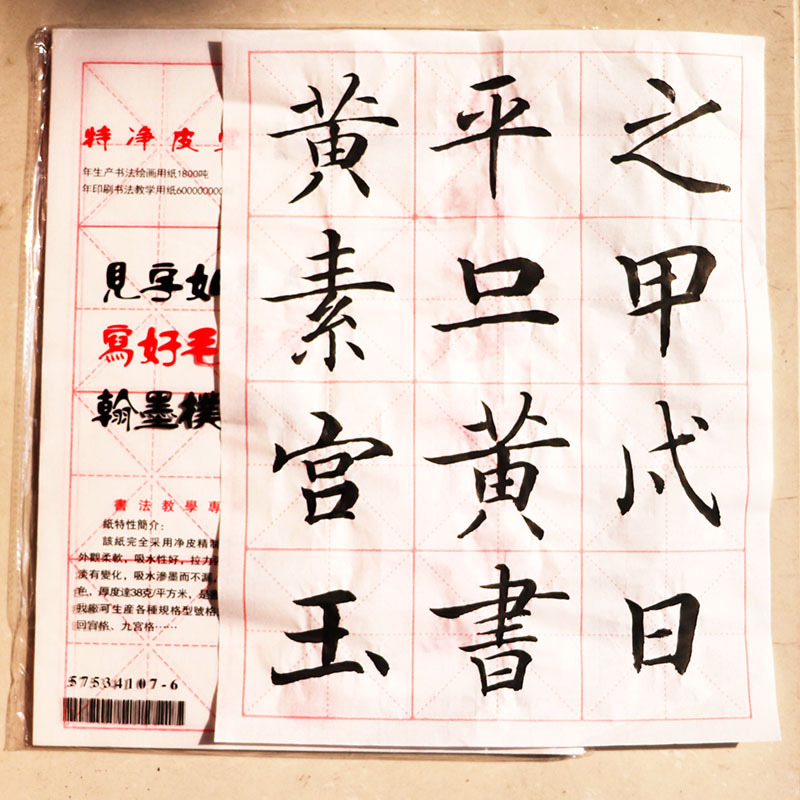 之甲戌日
平旦黄書
黄素宫玉
特净皮
年生产书法绘画用纸1800吨
年印刷书法教学用纸600000000
見字如
寫好毛
翰墨樸
書法教學專
紙特性簡介：
該紙完全采用净皮精
外觀柔軟，吸水性好，拉力
淡有變化，吸水滲墨而不漏，
色，厚度達38克/平方米，是
我廠可生産各種規格型號格
回宫格、九宫格……
57534107-6